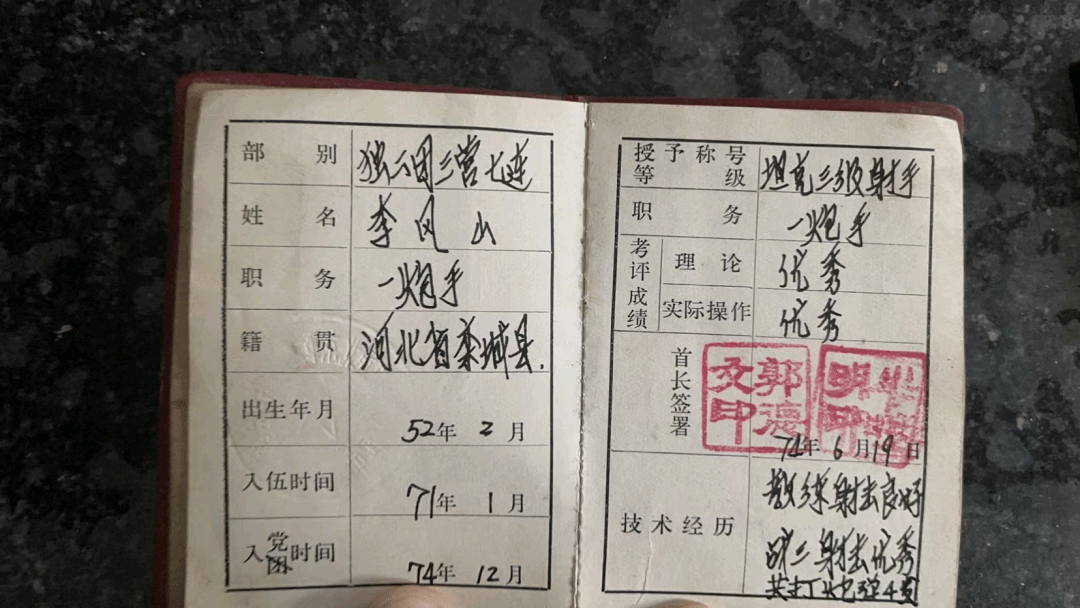 部别 独一团三营七连
姓名 李风山
职务 一炮手
籍贯 河北省栾城县.
出生年月 52年2月
入伍时间 71年1月
入党团时间 74年12月
授予称号等级 坦克三级射手
职务 一炮手
考评成绩 理论 优秀
实际操作 优秀
首长签署 郭德文印
74年6月19日
技术经历 教练射击良好
战二射击优秀
共打火炮弹4发